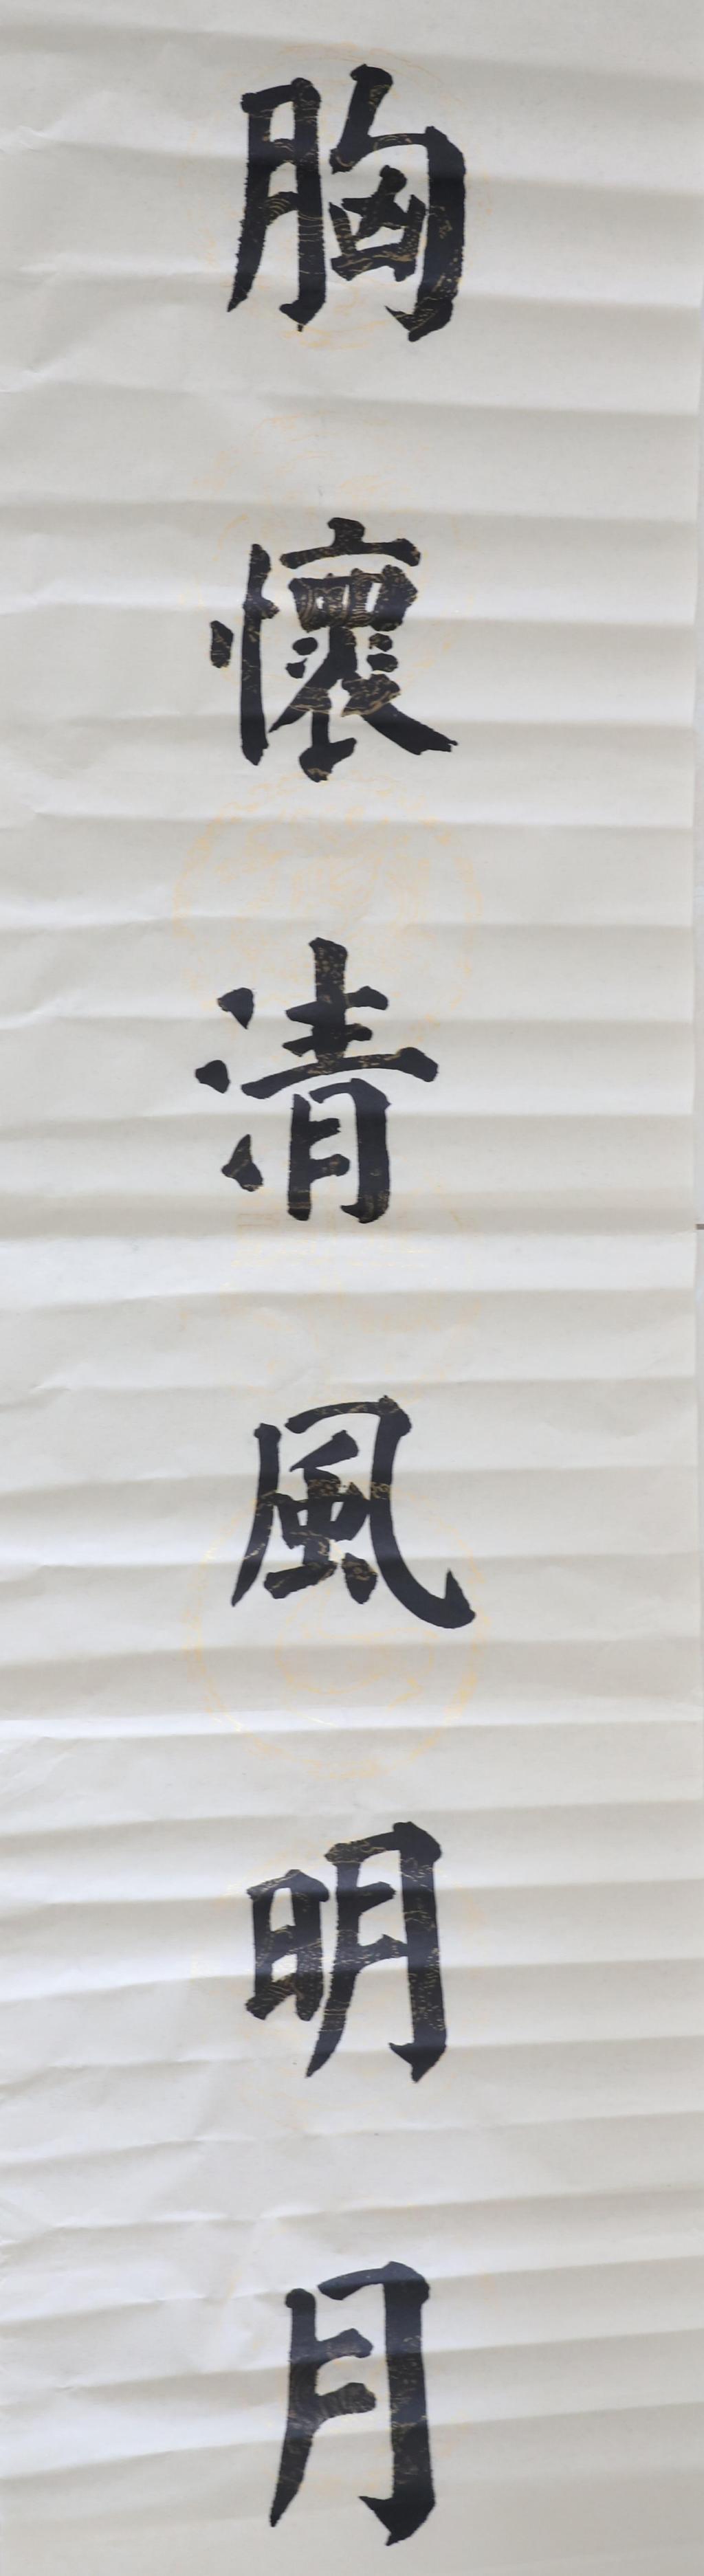 胸懷清風明月